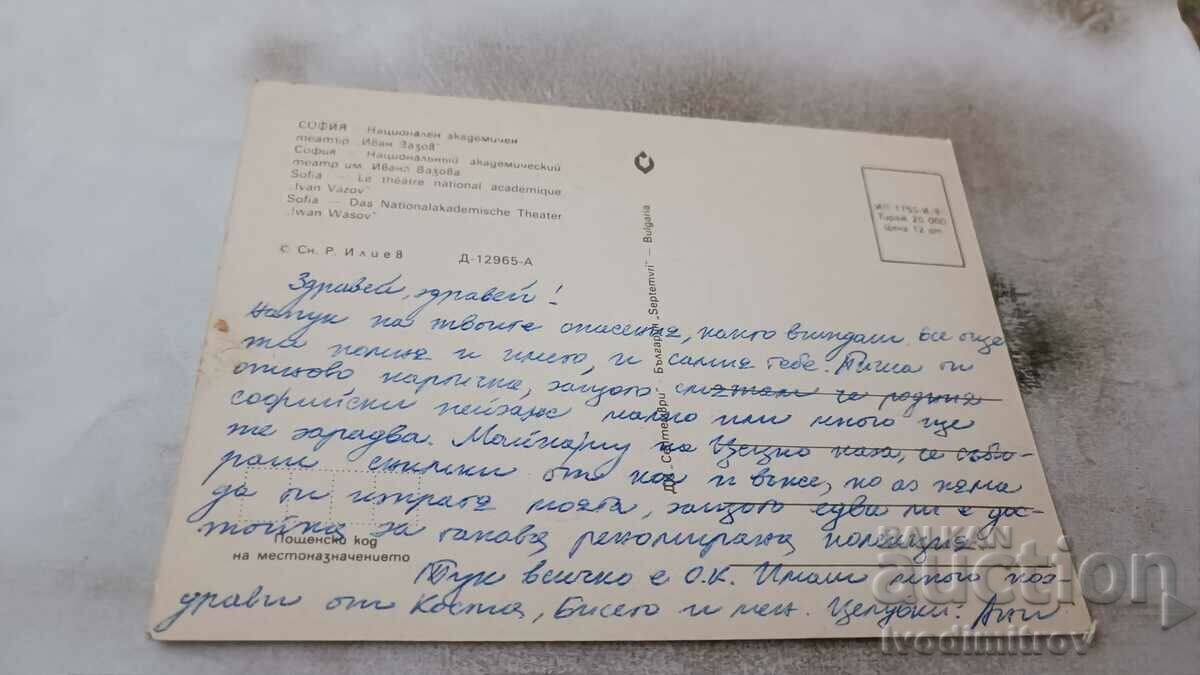 СОФИЯ – Национален академичен
театър „Иван Вазов"
София – Национальный академический
театр им. Ивана Вазова
Sofia – Le théâtre national academique
„Ivan Vazov"
Sofia – Das Nationalakademische Theater
„Iwan Wasov"
© Сн. Р. Илиев Д-12965-А
ДП „Септември" – България „Septemvri" – Bulgaria
Тираж 20 000
Цена 12 ст.
Здравей, здравей!
Напук на твоите опасения, както виждаш все още
ти помня и името, и самия тебе. Пиша ти
отново картичка, защото смятам че родния
софийски пейзаж малко или много ще
те зарадва. Майка му на каза, че съби-
рали снимки от кол и въже, но аз няма
да ти изпратя моята, защото едва ли е дос-
тойна за такава реномирана колекция.
Пощенски код
на местоназначението
Тук всичко е О.К. Имаш много поз-
драви от Костя, Бисето и мен. Целувки: Ани
BALKAN
auction
ivodimitrov